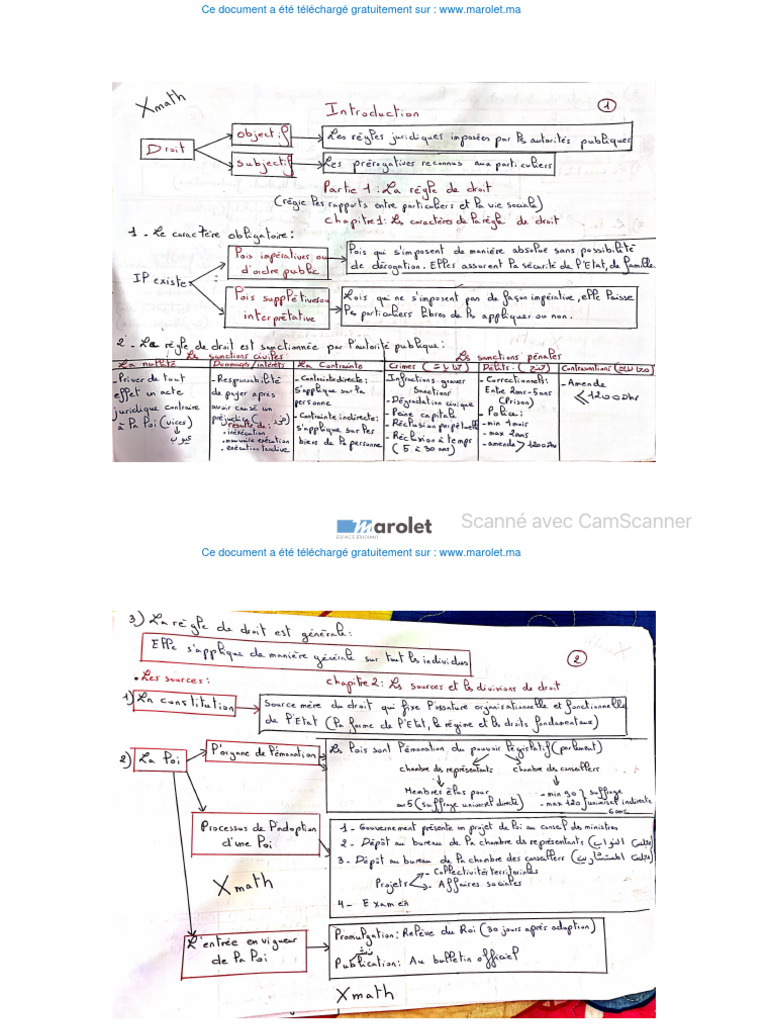 Ce document a été téléchargé gratuitement sur : www.marolet.ma
Xmath
Introduction
1
Droit
objectif
Les règles juridiques imposées par les autorités publiques
subjectif
Les prérogatives reconnus aux particuliers
Partie 1 : La règle de droit
(régie les rapports entre particuliers et la vie sociale)
Chapitre 1: Les caractères de la règle de droit
1 - Le caractère obligatoire :
IP existe
lois impératives ou
d'ordre public
lois qui s'imposent de manière absolue sans possibilité
de dérogation. Elles assurent la sécurité de l'Etat, de famille.
lois supplétives ou
interprétative
Lois qui ne s'imposent pas de façon impérative, elle laisse
les particuliers libres de les appliquer ou non.
2 - La règle de droit est sanctionnée par l'autorité publique :
Les sanctions civiles :
Les sanctions pénales
La nullité
- Priver de tout
effet un acte
juridique contraire
à la loi (vices)
عيوب
Dommages/intérêts
- Responsabilité
de payer après
avoir causé un
préjudice (ضرر)
résulte de :
- inexécution
- mauvaise exécution
- exécution tardive
La Contrainte
- Contrainte directe :
s'applique sur la
personne
- Contrainte indirecte :
s'applique sur les
biens de la personne
Crimes (جنايات)
Infractions graves
Sanctions
- Dégradation civique
- Peine capitale
- Réclusion perpétuelle
- Réclusion à temps
(5 à 30 ans)
Délits. (جنح)
- Correctionnels :
Entre 2ans-5ans
(Prison)
- Police :
- min 1 mois
- max 2ans
- amende > 1200Dhr
Contraventions (مخالفات)
- Amende
≤ 1200Dhr
marolet
ESPACE ÉTUDIANT
Scanné avec CamScanner
Ce document a été téléchargé gratuitement sur : www.marolet.ma
3) La règle de droit est générale :
Elle s'applique de manière générale sur tout les individus
2
• Les sources :
Chapitre 2 : Les sources et les divisions de droit
1) La constitution
Source mère du droit qui fixe l'ossature organisationnelle et fonctionnelle
de l'Etat (la forme de l'Etat, le régime et les droits fondamentaux)
2) La loi
l'organe de l'émanation
Les lois sont l'émanation du pouvoir législatif (parlement)
chambre des représentants
chambre des conseillers
Membres élus pour
ans 5 (suffrage universel directe)
- min 90
- max 120
suffrage
universel indirecte
6 ans
Processus de l'adoption
d'une loi
1 - Gouvernement présente un projet de loi au conseil des ministres
2 - Dépôt au bureau de la chambre des représentants (مجلس النواب)
3 - Dépôt au bureau de la chambre des conseillers (مجلس المستشارين)
Projets
- Collectivités territoriales
- Affaires sociales
4 - Examen
Xmath
L'entrée en vigueur
de la loi
Promulgation : Relève du Roi (30 jours après adoption)
نشر
Publication : Au bulletin officiel
Xmath